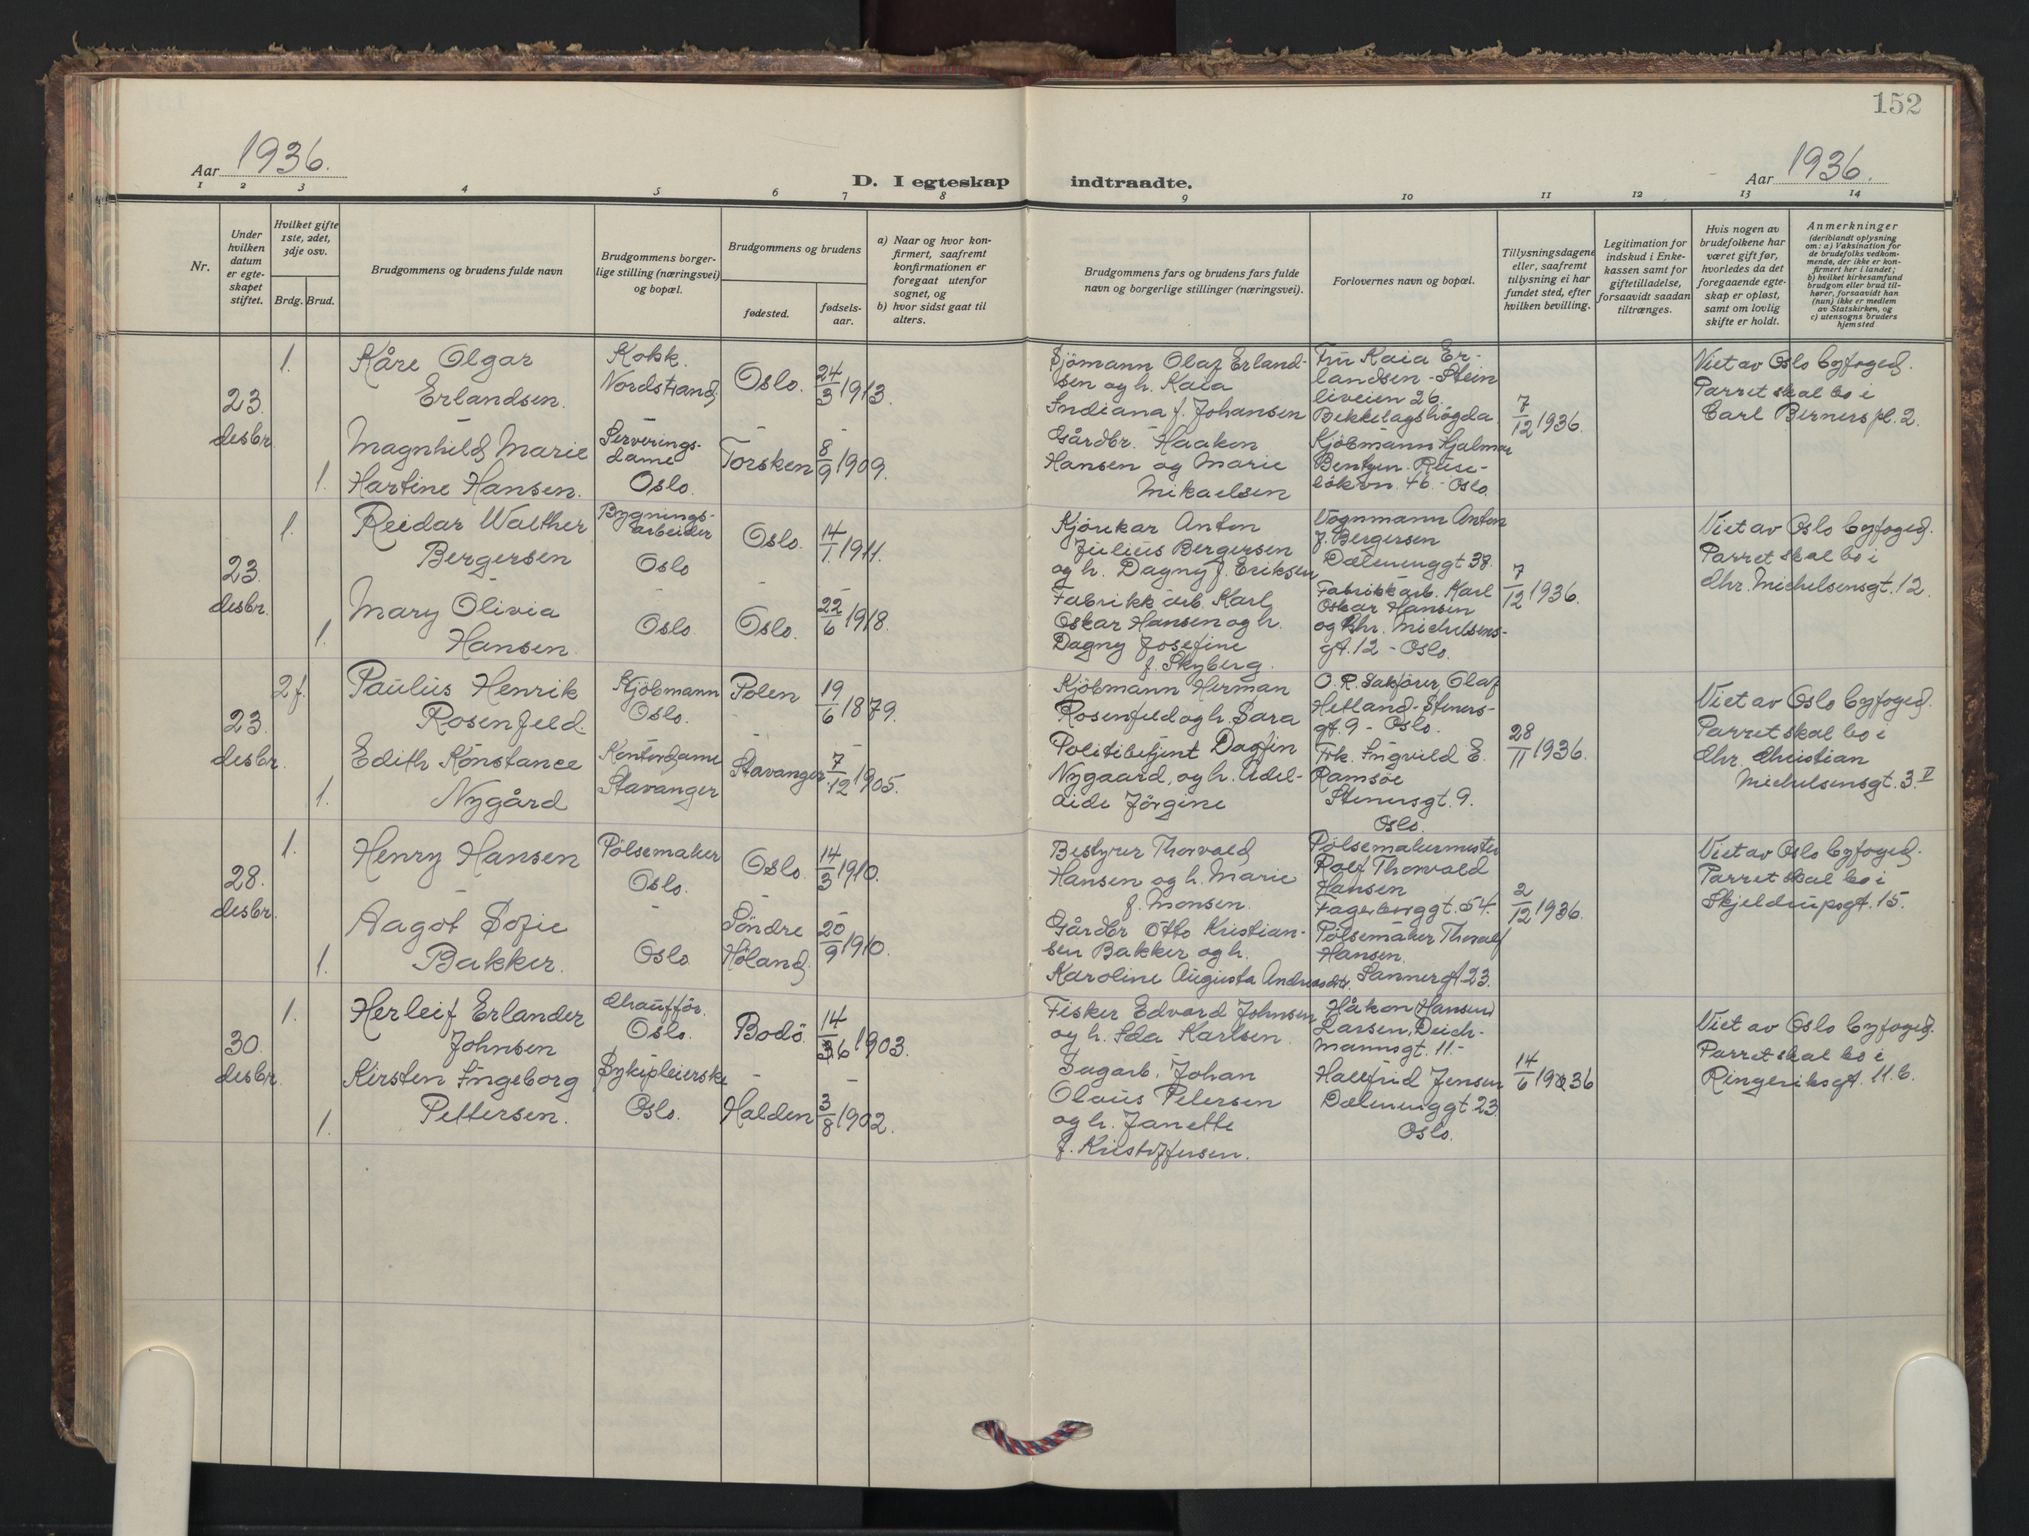 152
Aar 1936.
D. I egteskap indtraadte.
Aar 1936.
1 2 3 4 5 6 7 8 9 10 11 12 13 14
Nr.
Under hvilken datum er egteskapet stiftet.
Hvilket gifte 1ste, 2det, 3dje osv.
Brdg. Brud.
Brudgommens og brudens fulde navn
Brudgommens borgerlige stilling (næringsvei) og bopæl.
Brudgommens og brudens
fødested. fødselsaar.
a) Naar og hvor konfirmert, saafremt konfirmationen er foregaat utenfor sognet, og
b) hvor sidst gaat til alters.
Brudgommens fars og brudens fars fulde navn og borgerlige stillinger (næringsvei).
Forlovernes navn og bopæl.
Tillysningsdagene eller, saafremt tillysning ei har fundet sted, efter hvilken bevilling.
Legitimation for indskud i Enkekassen samt for giftetilladelse, forsaavidt saadan tiltrænges.
Hvis nogen av brudefolkene har været gift før, hvorledes da det foregaaende egteskap er opløst, samt om lovlig skifte er holdt.
Anmerkninger
(deriblandt oplysning om: a) Vaksination for de brudefolks vedkommende, der ikke er konfirmert her i landet;
b) hvilket kirkesamfund brudgom eller brud tilhører, forsaavidt han (hun) ikke er medlem av Statskirken, og
c) utensogns bruders hjemsted
23. desbr.
1.
Kåre Olgar
Erlandsen.
Kokk.
Nordstrand,
Oslo.
24/3 1913.
Sjömann Olaf Erland-
sen og h. Kaia
Indiana f. Johansen
Fru Kaia Er-
landsen - Stein
liveien 26.
Bekkelagshøgda
7/12 1936.
Viet av Oslo byfoged.
Parret skal bo i
Carl Berners pl. 2.
1.
Magnhild Marie
Hartine Hansen.
Serverings-
dame
Oslo.
Torsken
8/9 1909.
Gårdbr. Haakon
Hansen og Marie
Mikaelsen
Kjöbmann Hjalmar
Bentzen. Ruse-
løkvn. 46. - Oslo.
23. desbr.
1.
Reidar Walther
Bergersen
Bygnings-
arbeider
Oslo
Oslo.
14/1 1911.
Kjörekar Anton
Julius Bergersen
og h. Dagny f. Eriksen
Vognmann Anton
J. Bergersen
Dælenenggt 38.
7/12 1936.
Viet av Oslo byfoged.
Parret skal bo i
Chr. Michelsensgt. 12.
1.
Mary Olivia
Hansen.
Oslo.
Oslo.
22/6 1918.
Fabrikkarb. Karl
Oskar Hansen og h.
Dagny Josefine
f. Skyberg.
Fabrikkarb. Karl
Oskar Hansen
og Chr. Michelsens-
gt. 12 - Oslo.
23 desbr.
2 f.
Paulus Henrik
Rosenfeld.
Kjöbmann
Oslo.
Polen
19/6 1879.
Kjöbmann Herman
Rosenfeld og h. Sara
O. R. Sakförer Olaf
Hetland - Steners-
gt. 9 - Oslo.
28/11 1936.
Viet av Oslo byfoged.
Parret skal bo i
Chr. Christian
Michelsensgt. 3. V
1.
Edith Konstance
Nygård
Kontordame
Stavanger
Stavanger.
7/12 1905.
Politibetjent Dagfin
Nygaard, og h. Adel-
aide Jörgine
Frk. Ingvild E.
Ramsöe
Stenersgt. 9.
Oslo.
28. desbr.
1.
Henry Hansen
Pölsemaker
Oslo.
Oslo.
14/3 1910.
Bestyrer Thorvald
Hansen og h. Marie
f. Monsen.
Pølsemakermester
Rolf Thorvald
Hansen
Fagerborggt. 54.
2/12 1936.
Viet av Oslo byfoged.
Parret skal bo i
Skjeldrupsgt. 15.
1.
Aagot Sofie
Bakker.
Oslo
Söndre
Høland,
20/9 1910.
Gårdbr Otto Kristian-
sen Bakker og h.
Karoline Augusta Andreasdtr.
Pølsemaker Thorvald
Hansen.
Sannergt. 23.
30. desbr.
1.
Herleif Erlander
Johnsen
Chaufför.
Oslo.
Bodö.
14/6 1903.
Fisker Edvard Johnsen
og h. Ida Karlsen.
Håkon (Hansen)
Larsen, Deich-
mannsgt. 11.-
14/6 1936
Viet av Oslo byfoged.
Parret skal bo i
Ringeriksgt. 11.b.
1.
Kirsten Ingeborg
Pettersen.
Sykepleierske
Oslo.
Halden
3/8 1902.
Sagarb. Johan
Olaus Petersen
og h. Janette
f. Kristoffersen.
Hallfrid Jensen
Dælenenggt. 23
Oslo.